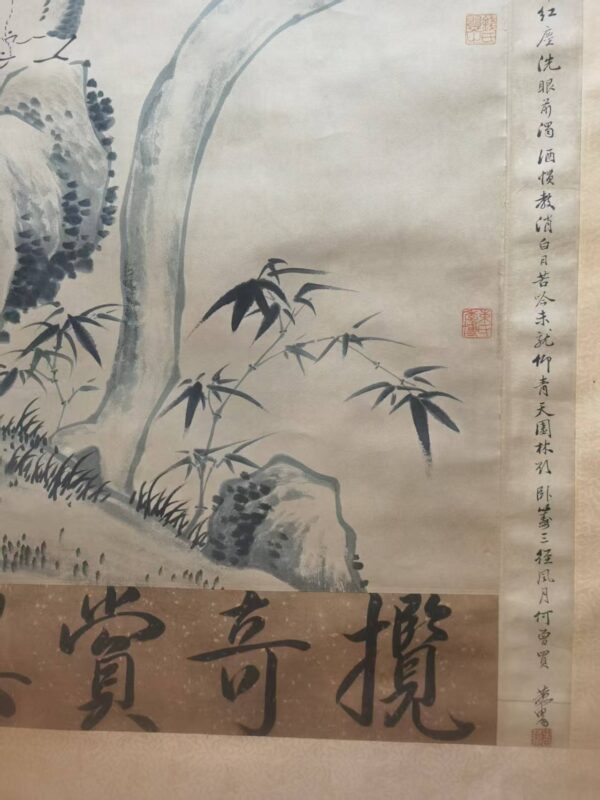 紅塵洗眼前濁酒慣教消白日苦吟未就仰青天園林臥三徑風月何曾買
攬奇賞